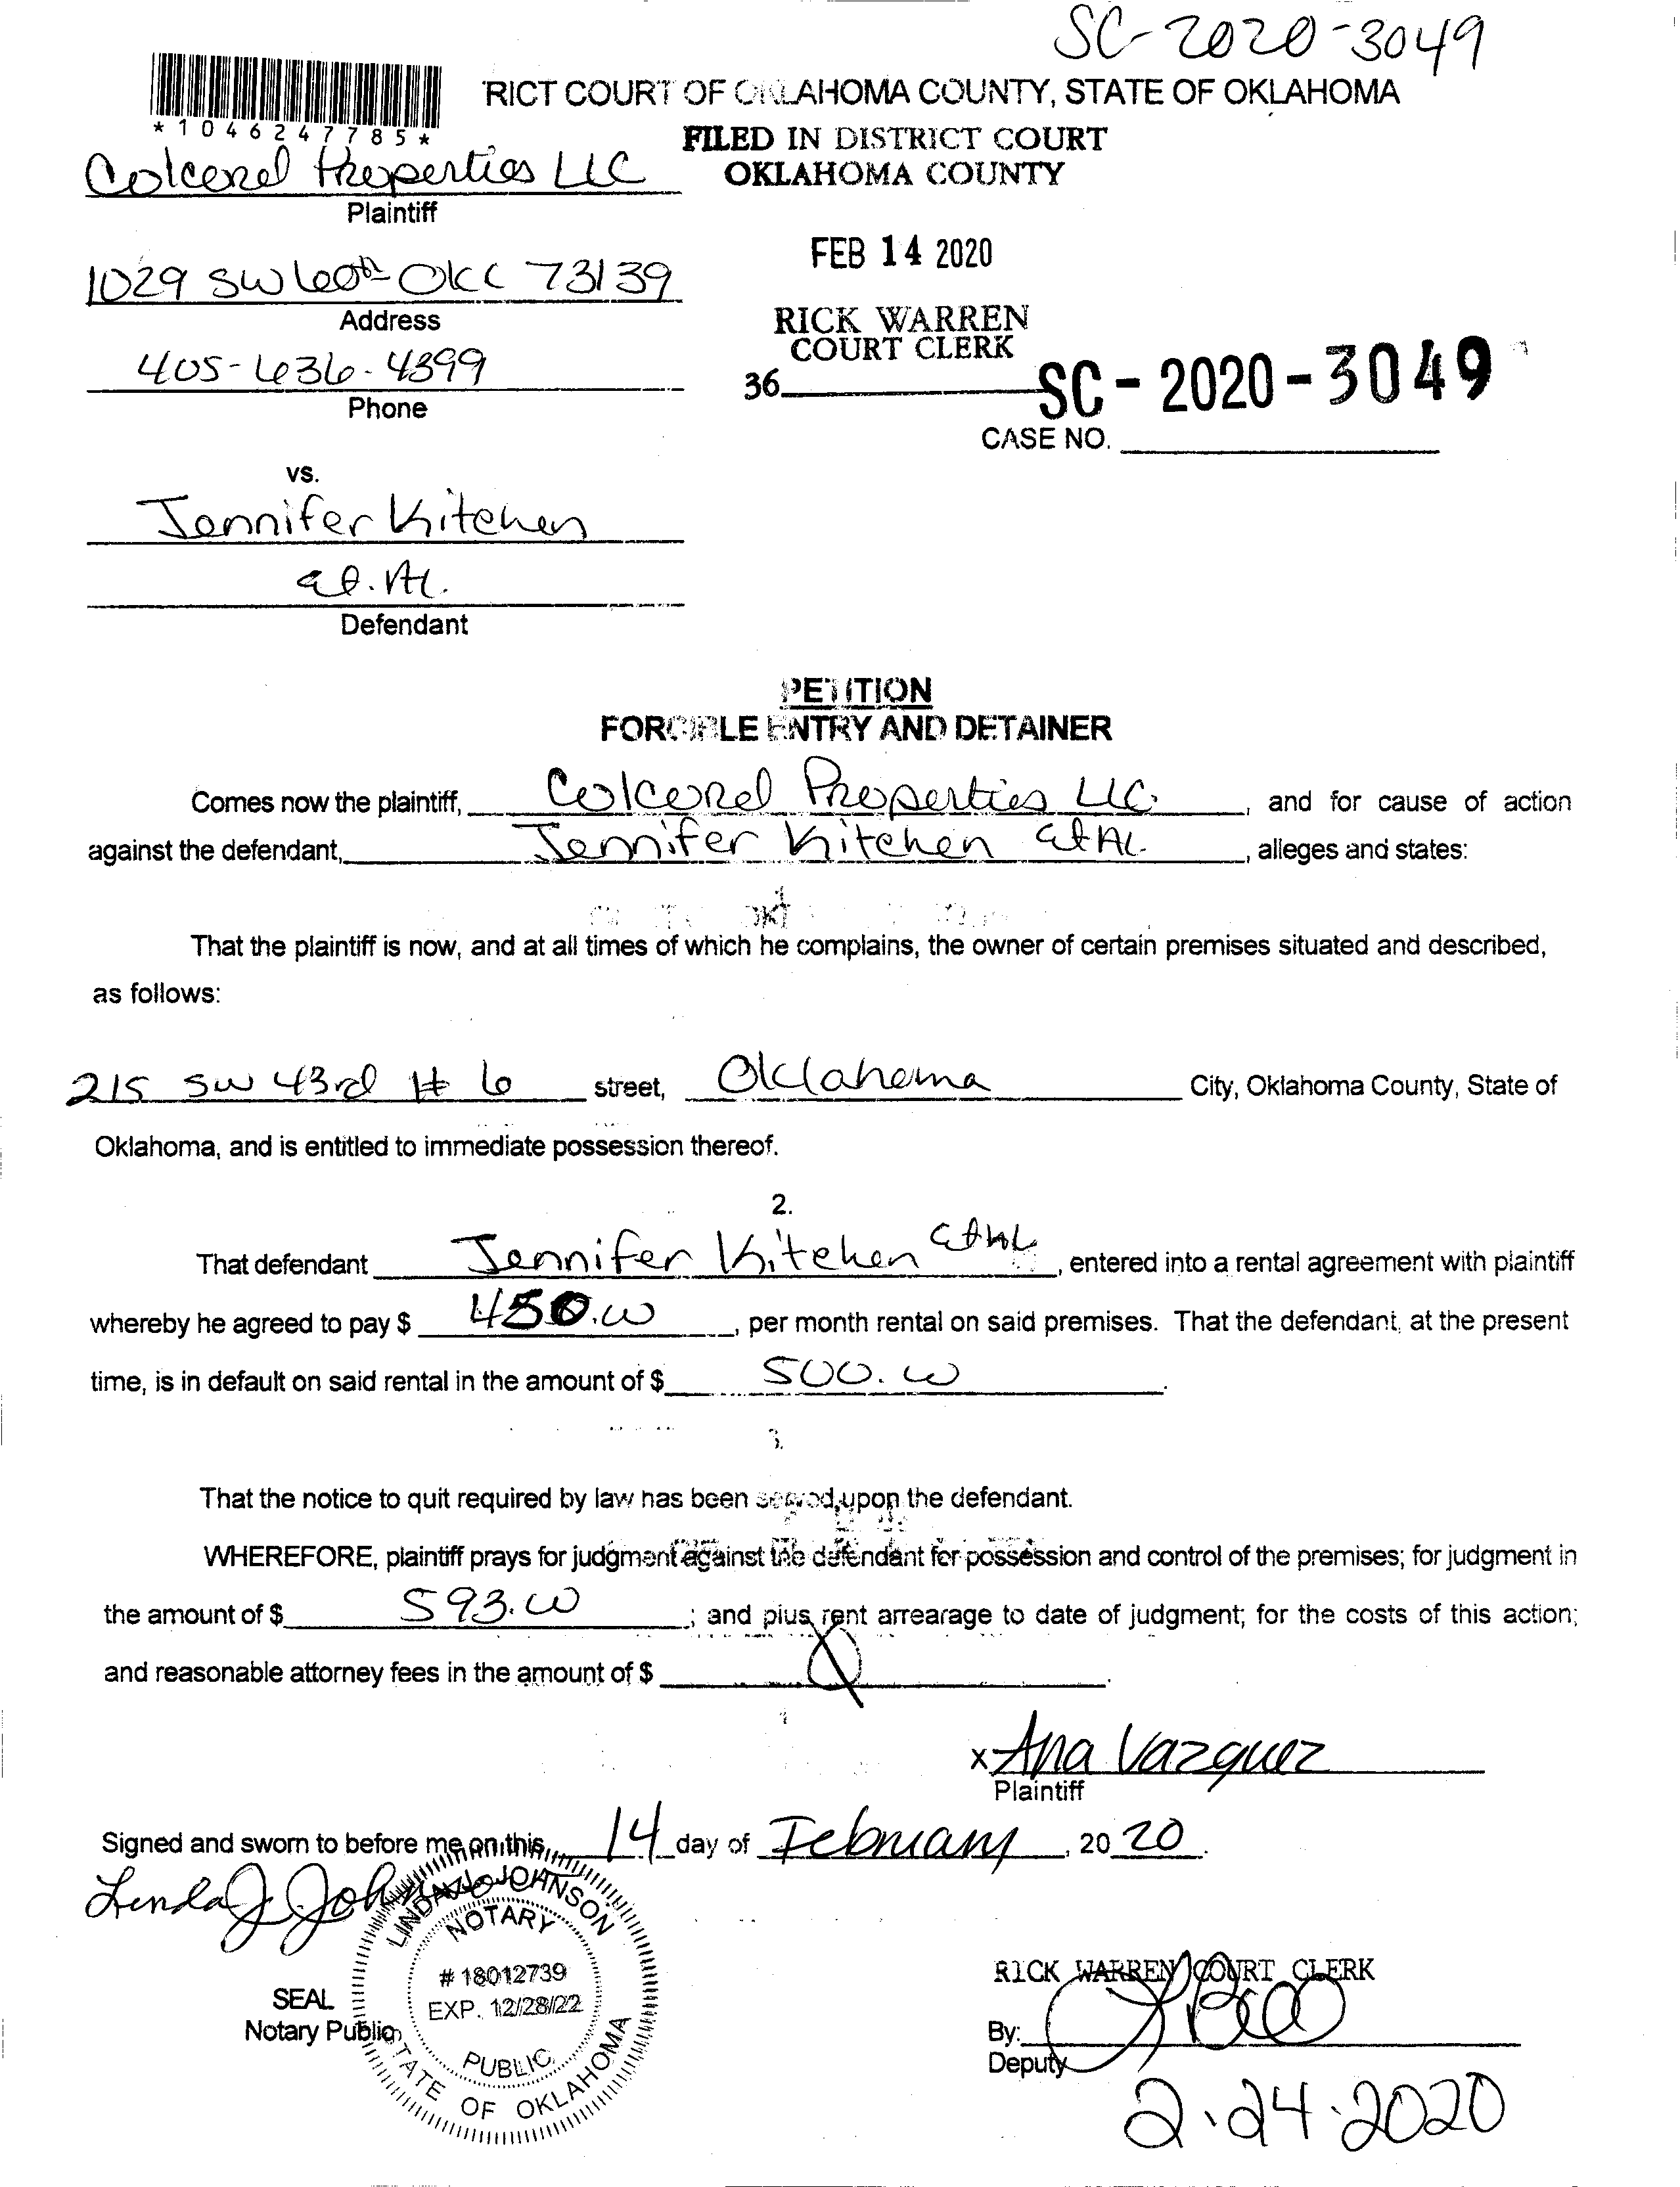 SC-2020-3049
RICT COURT OF OKLAHOMA COUNTY, STATE OF OKLAHOMA
*1046247785*
FILED IN DISTRICT COURT
OKLAHOMA COUNTY
Colcorel Properties LLC
Plaintiff
FEB 14 2020
1029 SW 60th OKC 73139
Address
RICK WARREN
COURT CLERK
405-636-4399
Phone
36
SC-2020-3049
CASE NO.
vs.
Jennifer Kitchen
et. Al.
Defendant
PETITION
FORCIBLE ENTRY AND DETAINER
Comes now the plaintiff, Colcorel Properties LLC. , and for cause of action
against the defendant, Jennifer Kitchen et AL. , alleges and states:
That the plaintiff is now, and at all times of which he complains, the owner of certain premises situated and described,
as follows:
215 SW 43rd # 6 street, Oklahoma City, Oklahoma County, State of
Oklahoma, and is entitled to immediate possession thereof.
2.
That defendant Jennifer Kitchen et AL , entered into a rental agreement with plaintiff
whereby he agreed to pay $ 450.00 , per month rental on said premises. That the defendant, at the present
time, is in default on said rental in the amount of $ 500.00 .
3.
That the notice to quit required by law has been served upon the defendant.
WHEREFORE, plaintiff prays for judgment against the defendant for possession and control of the premises; for judgment in
the amount of $ 593.00 ; and plus rent arrearage to date of judgment; for the costs of this action;
and reasonable attorney fees in the amount of $ .
x Ana Vazquez
Plaintiff
Signed and sworn to before me on this 14 day of February , 20 20 .
Linda J Johnson
LINDA JOHNSON
NOTARY
# 18012739
EXP. 12/28/22
PUBLIC
STATE OF OKLAHOMA
SEAL
Notary Public
RICK WARREN COURT CLERK
By:
Deputy
2.24.2020